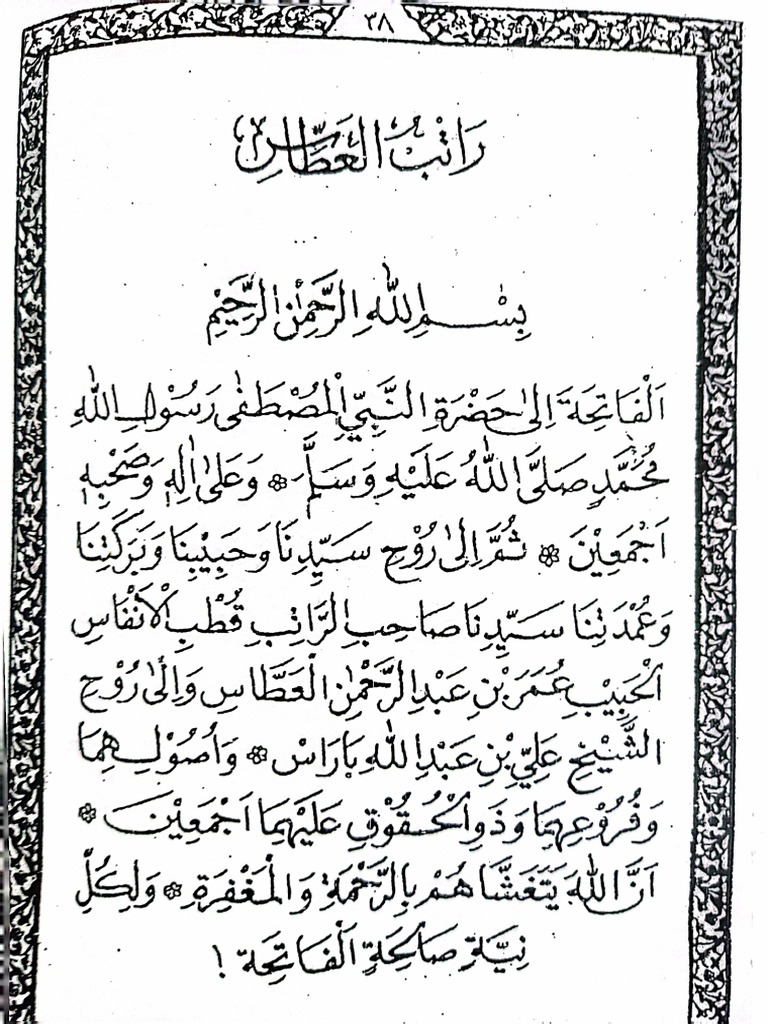 ٣٨
رَاتِبُ الْعَطَّاسِ
بِسْــــمِ اللّٰهِ الرَّحْمٰنِ الرَّحِيْمِ
اَلْفَاتِحَةَ اِلٰى حَضْرَةِ النَّبِيِّ الْمُصْطَفٰى رَسُوْلِ اللّٰهِ
مُحَمَّدٍ صَلَّى اللّٰهُ عَلَيْهِ وَسَلَّمَ ۞ وَعَلٰى اٰلِهٖ وَصَحْبِهٖ
اَجْمَعِيْنَ ۞ ثُمَّ اِلٰى رُوْحِ سَيِّدِنَا وَحَبِيْبِنَا وَبَرَكَتِنَا
وَعُمْدَتِنَا سَيِّدِنَا صَاحِبِ الرَّاتِبِ قُطْبِ الْاَنْفَاسِ
اَلْحَبِيْبِ عُمَرَ بْنِ عَبْدِ الرَّحْمٰنِ الْعَطَّاسِ وَاِلٰى رُوْحِ
الشَّيْخِ عَلِيِّ بْنِ عَبْدِ اللّٰهِ بَارَاسْ ۞ وَاُصُوْلِهِمَا
وَفُرُوْعِهِمَا وَذَوِى الْحُقُوْقِ عَلَيْهِمَا اَجْمَعِيْنَ ۞
اَنَّ اللّٰهَ يَتَغَشَّاهُمْ بِالرَّحْمَةِ وَالْمَغْفِرَةِ ۞ وَلِكُلِّ
نِيَّةٍ صَالِحَةٍ اَلْفَاتِحَة !